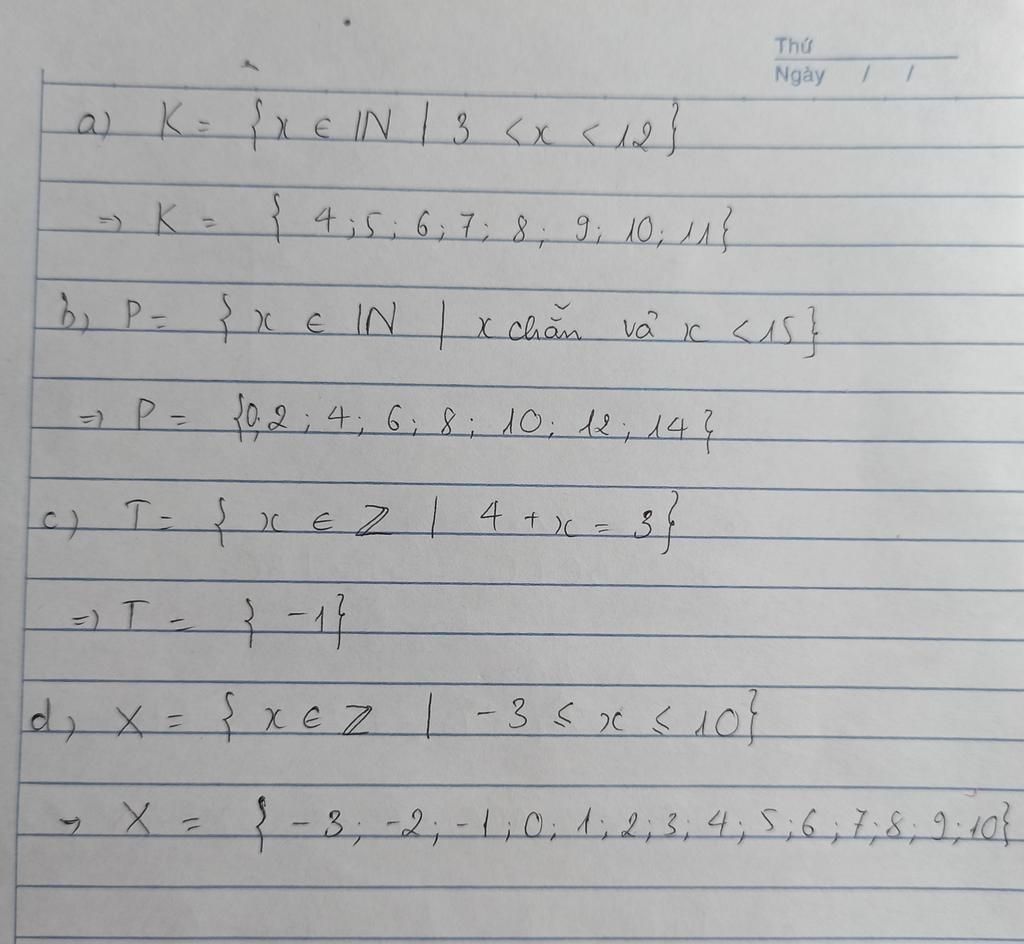 Thứ
Ngày / /
a) K = {x ∈ ℕ | 3 < x < 12}
=> K = { 4; 5; 6; 7; 8; 9; 10; 11}
b, P = { x ∈ ℕ | x chẵn và x < 15}
=> P = {0; 2; 4; 6; 8; 10; 12; 14}
c) T = { x ∈ ℤ | 4 + x = 3}
=> T = { -1}
d, X = { x ∈ ℤ | -3 ≤ x ≤ 10}
→ X = { -3; -2; -1; 0; 1; 2; 3; 4; 5; 6; 7; 8; 9; 10}